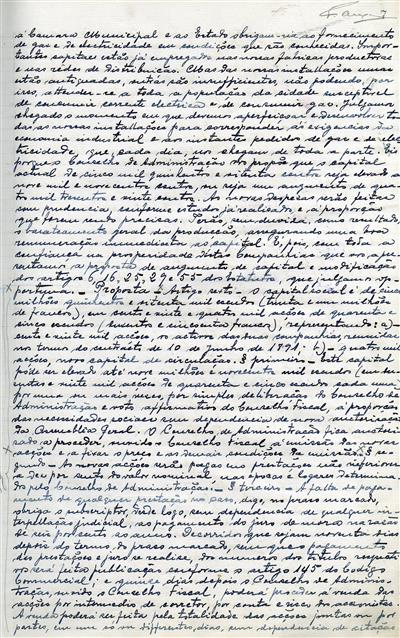 á Camara Municipal e ao Estado obrigam-na ao fornecimento
de gaz e de electricidade em condições que são conhecidas. Impor-
tantes capitaes estão já empregados nas nossas fabricas productoras
e nas redes de distribuição. Mas das nossas installações umas
estão antiquadas, outras são insufficientes, não podendo, por
isso, attender-se a toda a população da cidade susceptivel
de consumir corrente electrica e de consumir gaz. Julgamos
chegado o momento em que devemos aperfeiçoar e desenvolver to-
das as nossas installações para corresponder ás exigencias da
economia industrial e aos instantes pedidos de gaz e de elec-
tricidade, que, cada dia, nos chegam de toda a parte. Eis
porque o Conselho de Administração vos propõe que o capital
actual de cinco mil quinhentos e setenta contos seja elevado a
nove mil e novecentos contos, ou seja um augmento de qua-
tro mil trezentos e trinta contos. As novas despezas serão feitas
com prudencia, conforme estudos já realizados e á proporção
que forem sendo precisas. Terão, sem duvida, como resultado,
o barateamento geral da producção, assegurando uma boa
remuneração immediata ao capital. E, pois, com toda a
confiança na prosperidade destas Companhias que vos apre-
sentamos a proposta de augmento de capital e modificação
dos artigos 6, 16, 25, 29 e 50 dos Estatutos, que julgamos op-
portuna. - Proposta - Artigo sexto - O capital social é de cinco
milhões quinhentos e setenta mil escudos (trinta e um milhões
de francos), em cento e vinte e quatro mil acções de quarenta e
cinco escudos (duzentos e cincoenta francos), representando: a) -
cento e vinte mil acções, os activos das duas companhias reunidas
nos termos do contracto de 10 de Junho de 1891; b) - quatro mil
acções, novo capital de circulação. § primeiro - Este capital
póde ser elevado até nove milhões e novecentos mil escudos (em du-
zentas e vinte mil acções de quarenta e cinco escudos cada uma)
por uma ou mais vezes, por simples deliberação do Conselho de
Administração e voto affirmativo do Conselho Fiscal, á proporção
das necessidades sociaes e sem dependencia de nova auctorização
da Assembléa Geral. O Conselho de Administração fica auctori-
sado a proceder, ouvido o Conselho Fiscal, á emissão das novas
acções e a fixar o preço e as demais condições da emissão. § se-
gundo - As novas acções serão pagas em prestações não inferiores
a dez por cento do valor nominal, nas épocas e logares determina-
dos pelo Conselho de Administração. - § terceiro - A falta de paga-
mento de qualquer prestação no caso, digo, no prazo marcado,
obriga o subscriptor, desde logo, sem dependencia de qualquer in-
terpellação judicial, ao pagamento do juro de mora na razão
de seis por cento ao anno. Decorridos que sejam noventa dias
depois do termo, do prazo marcado, sem que o pagamento
das prestações e juros se realise, do numero dos titulos respecti-
vos será feita publicação conforme o artigo 145 do Codigo
Commercial; e quinze dias depois o Conselho de Adminis-
tração, ouvido o Conselho Fiscal, poderá proceder á venda das
acções por intermedio de corretor, por conta e risco dos accionistas.
A venda poderá ser feita pela totalidade das acções juntas ou por
partes, em um só ou differentes dias, sem dependencia de citação